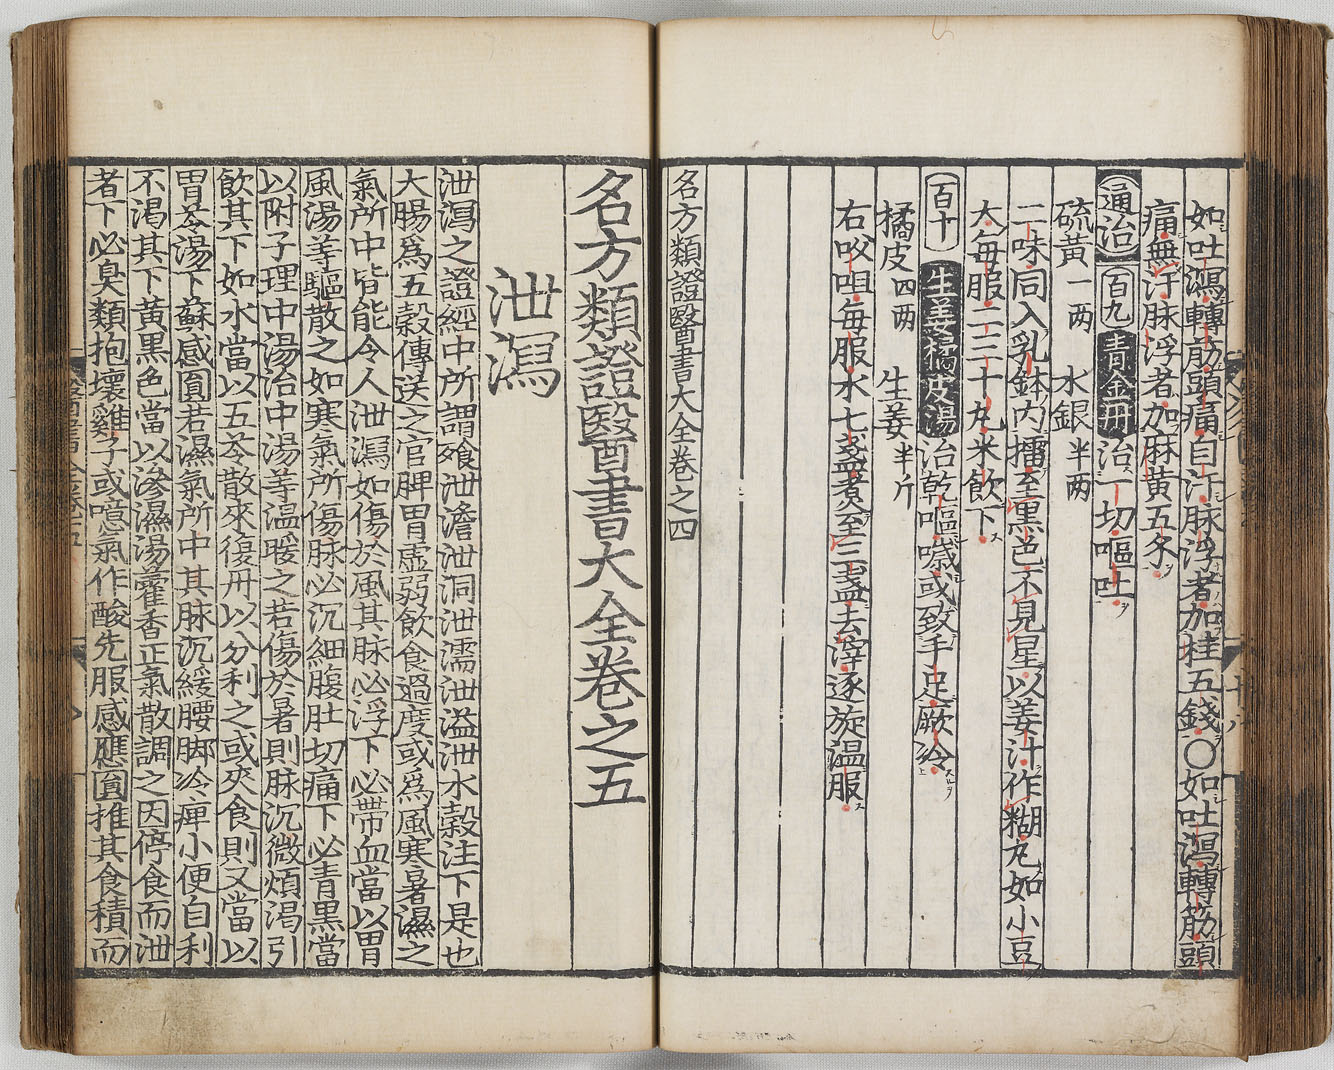 如吐瀉轉筋頭痛自汗脉浮者加桂五錢〇如吐瀉轉筋頭
痛無汗脉浮者加麻黄五錢
通治 百九 青金丹 治一切嘔吐
硫黄一两 水銀半两
二味同入乳鉢内擂至黒色不見星以姜汁作糊丸如小豆
大每服二三十丸米飲下
百十 生姜橘皮湯 治乾嘔噦或致手足厥冷
橘皮四两 生姜半斤
右㕮咀每服水七盞煮至三盞去滓逐旋温服
名方類證醫書大全卷之四
名方類證醫書大全卷之五
泄瀉
泄瀉之證經中所謂飧泄澹泄洞泄濡泄溢泄水穀注下是也
大腸爲五穀傳送之官脾胃虚弱飲食過度或爲風寒暑濕之
氣所中皆能令人泄瀉如傷於風其脉必浮下必帶血當以胃
風湯等驅散之如寒氣所傷脉必沉細腹肚切痛下必青黒當
以附子理中湯治中湯等温暖之若傷於暑則脉沉微煩渴引
飲其下如水當以五苓散來復丹以分利之或夾食則又當以
胃苓湯下蘇感圓若濕氣所中其脉沉緩腰脚冷痺小便自利
不渴其下黄黒色當以滲濕湯藿香正氣散調之因停食而泄
者下必臭類抱壞雞子或噫氣作酸先服感應圓推其食積而